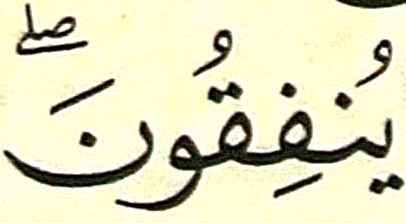 يُنفِقُونَۖ